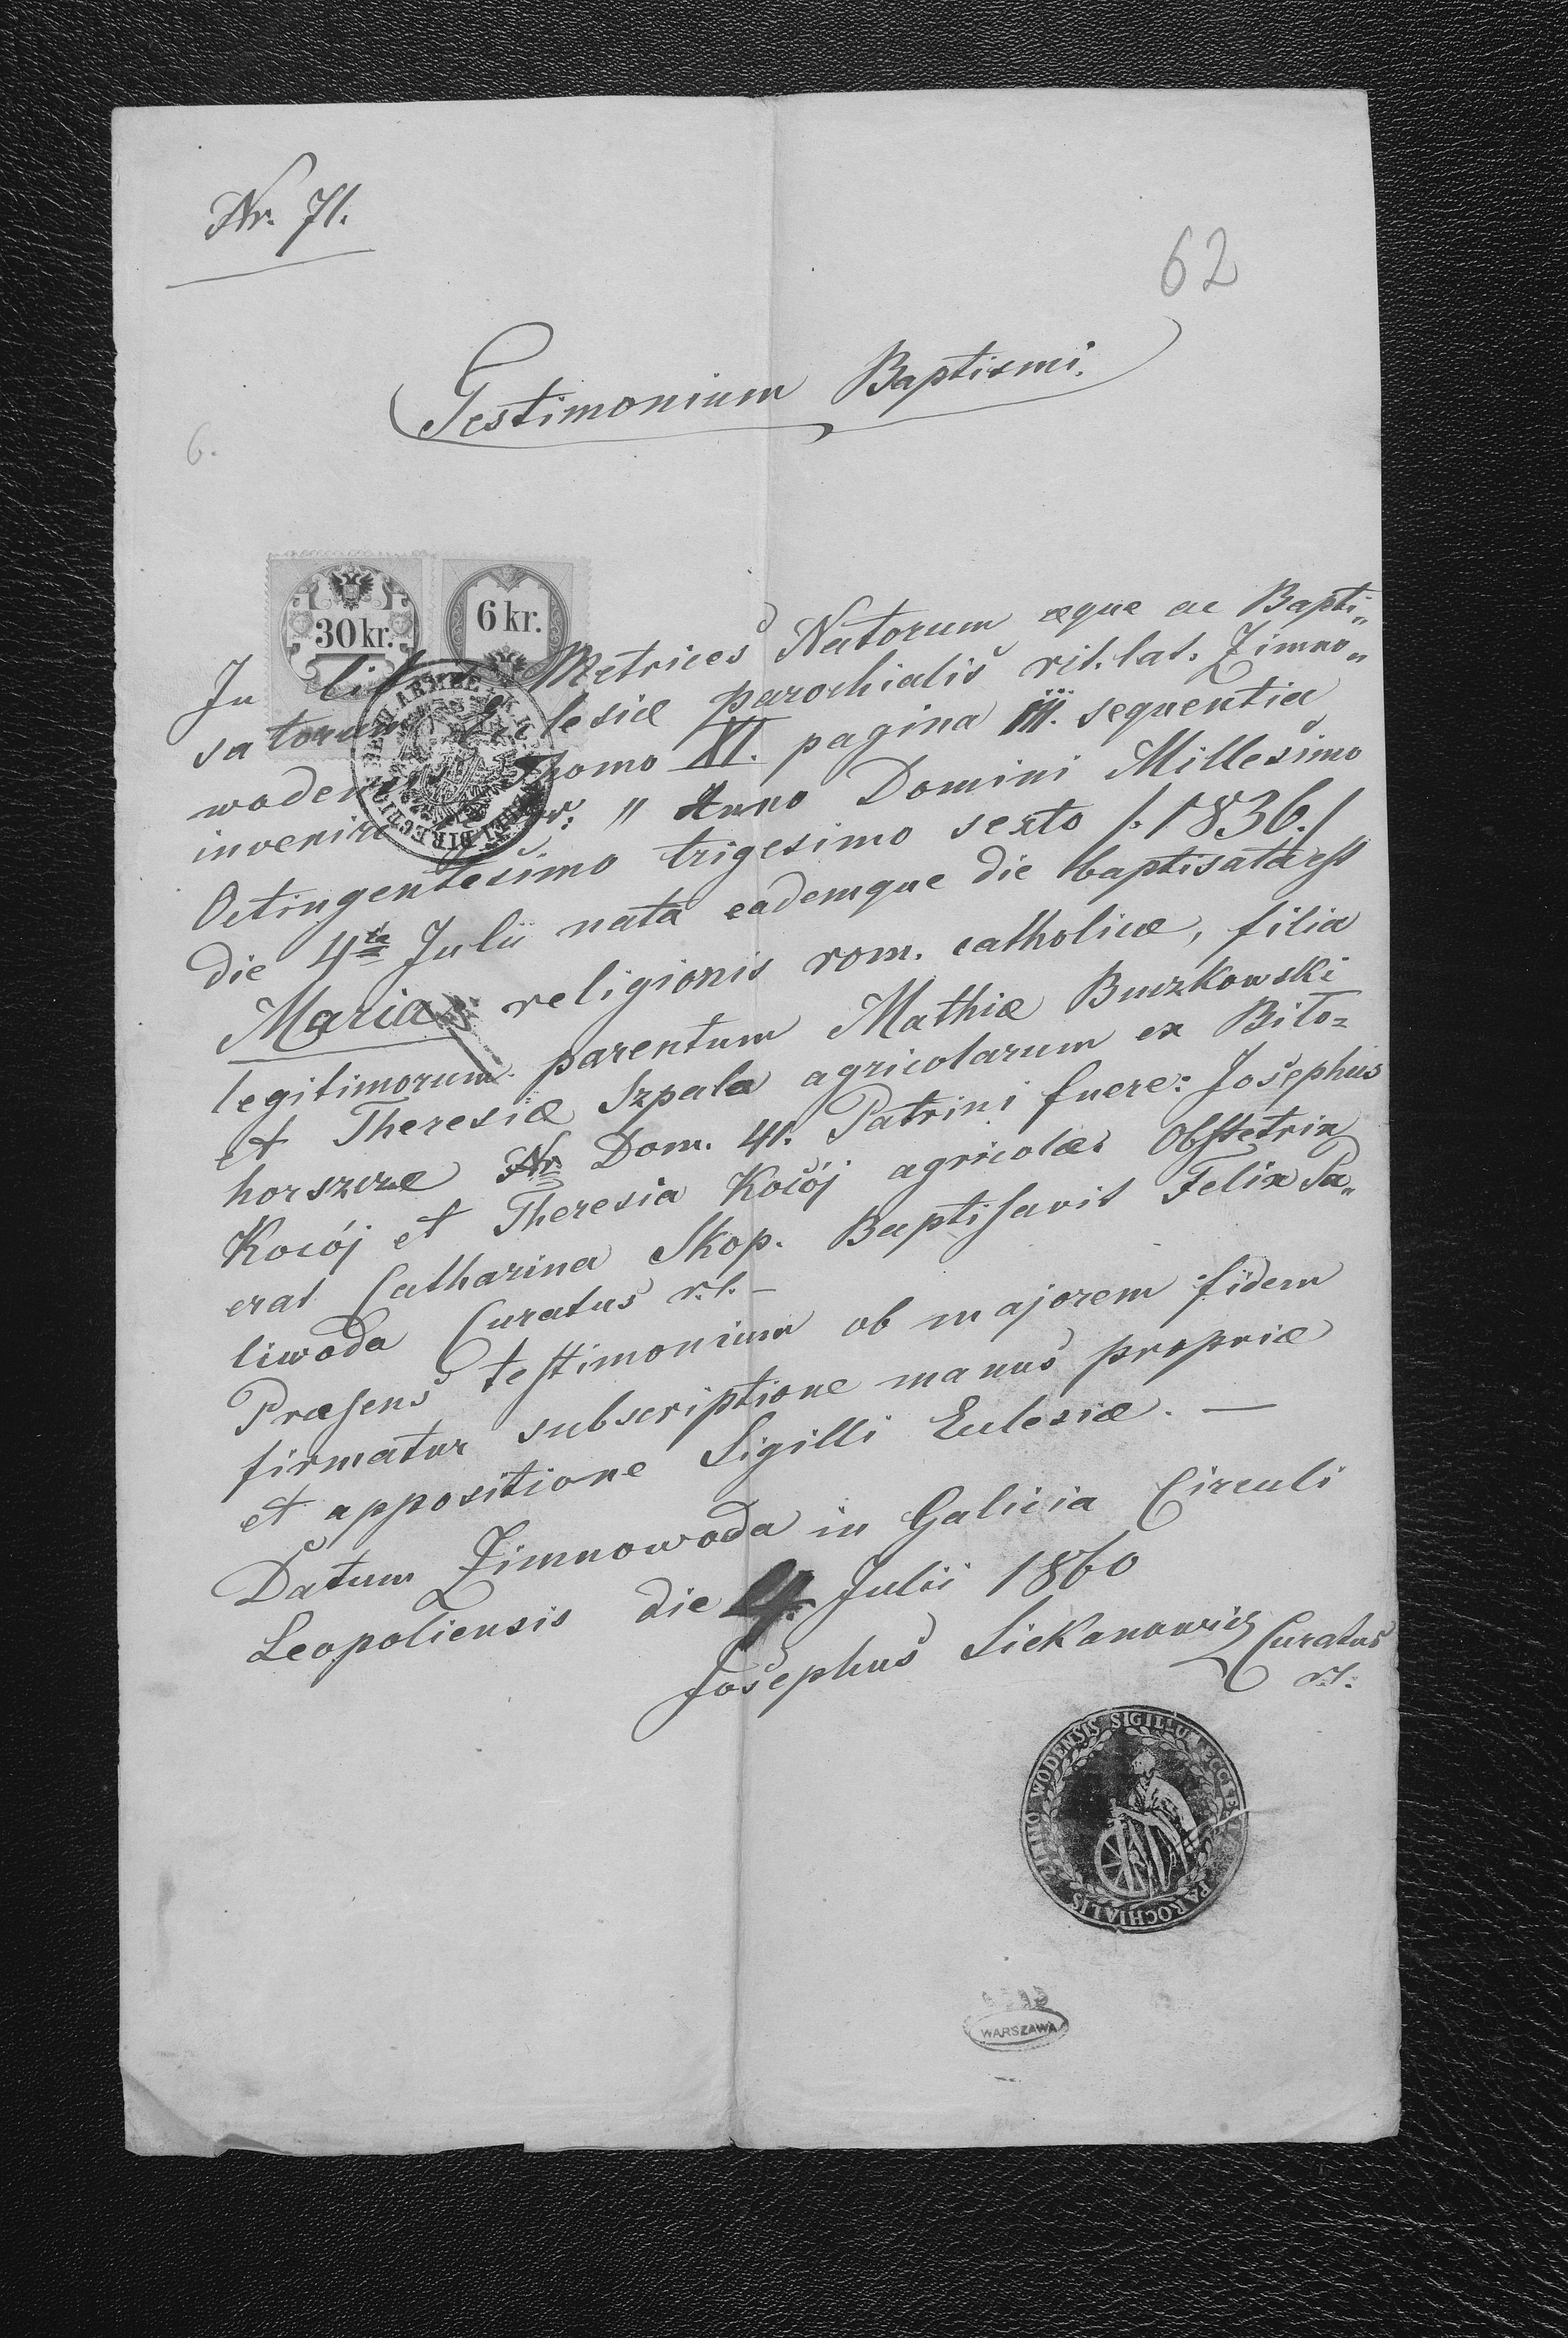 Nr. 71.
62
Testimonium Baptismi.
6.
30 kr.
6 kr.
In Metrices Natorum æque ac Bapti„
satorum Eclesiæ parochialis rit. lat. Zimno„
wodensis Thomo XI. pagina III. sequentia
invenire " Anno Domini Millesimo
Octingentesimo trigesimo sexto /. 1836./
die 4ta Julii nata eademque die baptisata est
Maria religionis rom. catholicæ, filia
legitimorum parentum Mathiæ Buczkowski
et Theresiæ Szpala agricolarum ex Bito=
horszcze Nr Dom. 41. Patrini fuere: Josephus
Kocój et Theresia Kocój agricolæ. Obstetrix
erat Catharina Skop. Baptisavit Felix Pa„
liwoda Curatus r.l. —
Præsens testimonium ob majorem fidem
firmatur subscriptione manus propriæ
et appositione Sigilli Eclesiæ. —
Datum Zimnowoda in Galicia Circuli
Leopoliensis die 4. Julii 1860
Josephus Siekanowicz Curatus
r.l.
SIGILLUM ECCLESIÆ PAROCHIALIS ZIMNO WODENSIS
WARSZAWA